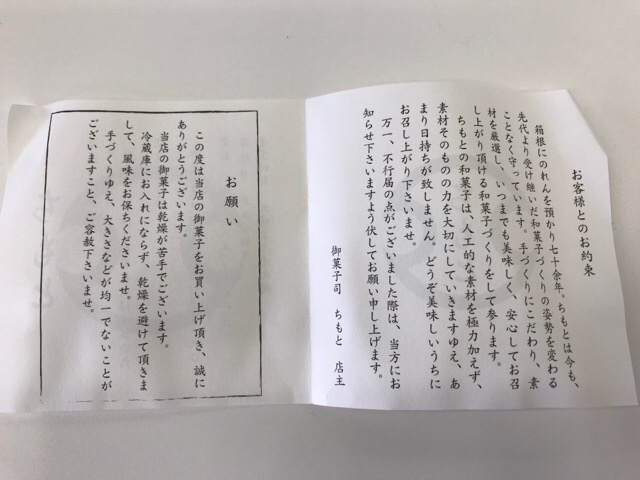 お客様とのお約束
箱根にのれんを預かり七十余年。ちもとは今も、
先代より受け継いだ和菓子づくりの姿勢を変わる
ことなく守っています。手づくりにこだわり、素
材を厳選し、いつまでも美味しく、安心してお召
し上がり頂ける和菓子づくりをして参ります。
ちもとの和菓子は、人工的な素材を極力加えず、
素材そのものの力を大切にしていきますゆえ、あ
まり日持ちが致しません。どうぞ美味しいうちに
お召し上がり下さいませ。
万一、不行届の点がございました際は、当方にお
知らせ下さいますよう伏してお願い申し上げます。
御菓子司 ちもと 店主
お願い
この度は当店の御菓子をお買い上げ頂き、誠に
ありがとうございます。
当店の御菓子は乾燥が苦手でございます。
冷蔵庫にお入れにならず、乾燥を避けて頂きま
して、風味をお保ちくださいませ。
手づくりゆえ、大きさなどが均一でないことが
ございますこと、ご容赦下さいませ。